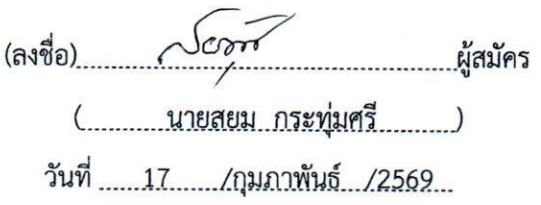 (ลงชื่อ) ผู้สมัคร
( นายสยม กระทุ่มศรี )
วันที่ 17 /กุมภาพันธ์ /2569